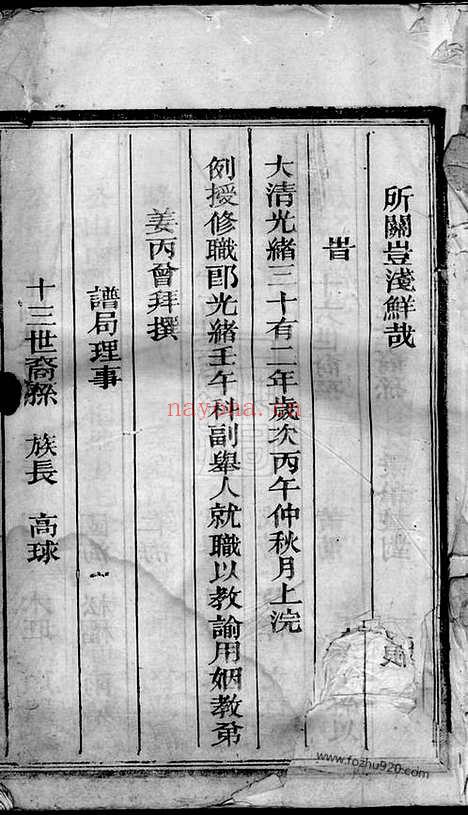 所關豈淺鮮哉
旹
大清光緒三十有二年歲次丙午仲秋月上浣
例授修職郎光緒壬午科副舉人就職以教諭用姻教弟
姜丙曾拜撰
譜局理事
十三世裔孫 族長 高球
nayona.cn
www.fozhu920.com